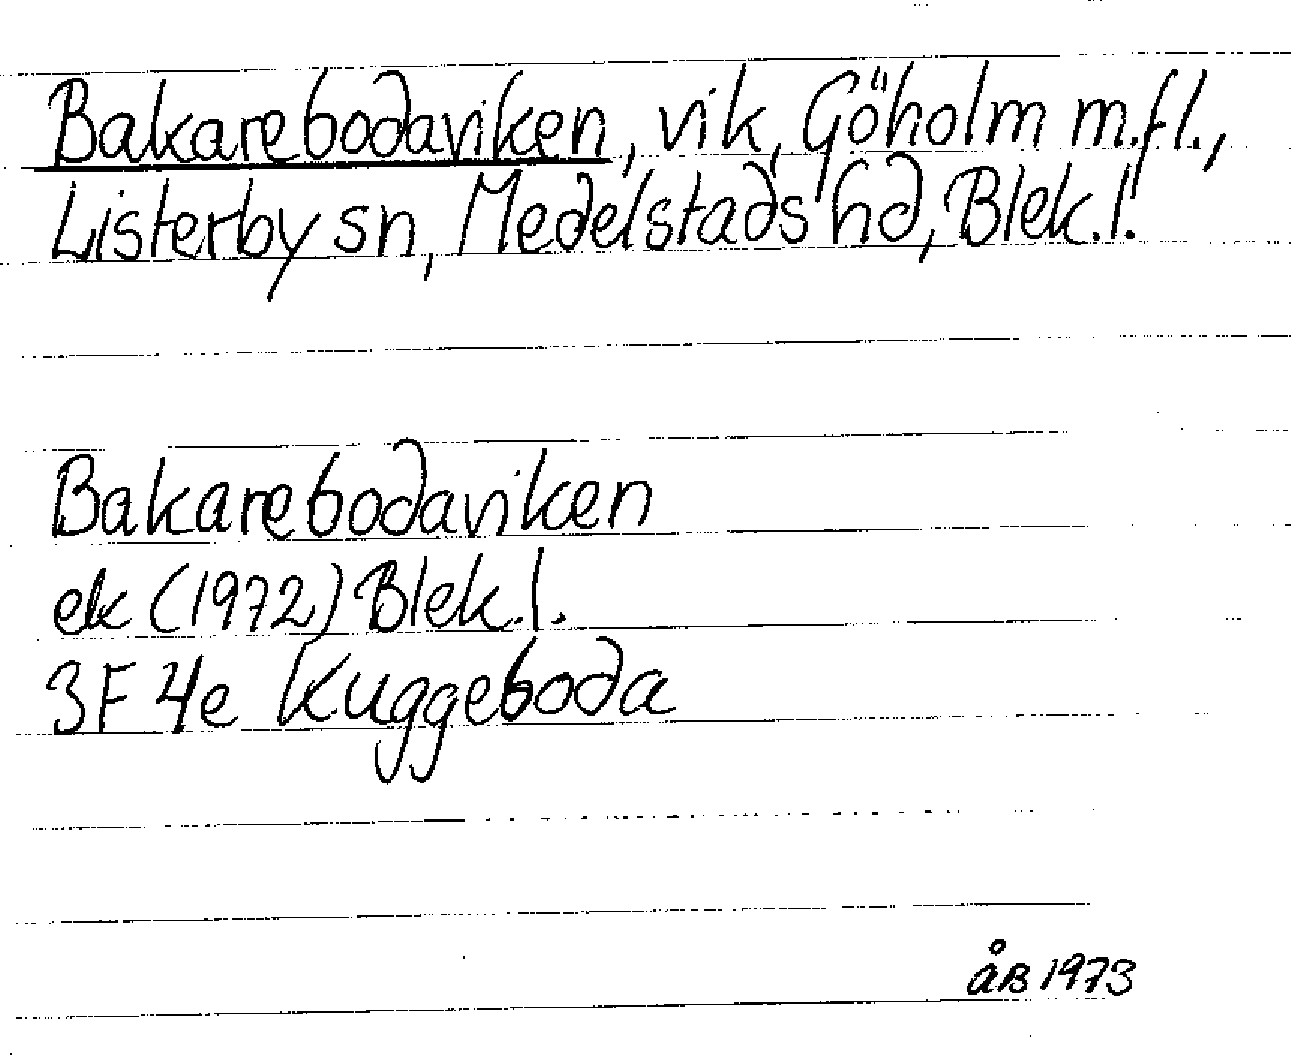 Bakarebodaviken, vik, Göholm m.fl.,
Listerby sn, Medelstads hd, Blek.l.
Bakarebodaviken
ek (1972) Blek.l.
3F 4e Kuggeboda
åB 1973